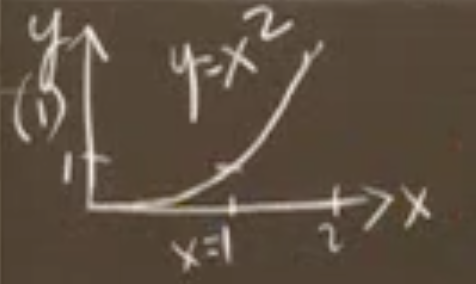 y
y=x²
(1)
1
x
x=1
2